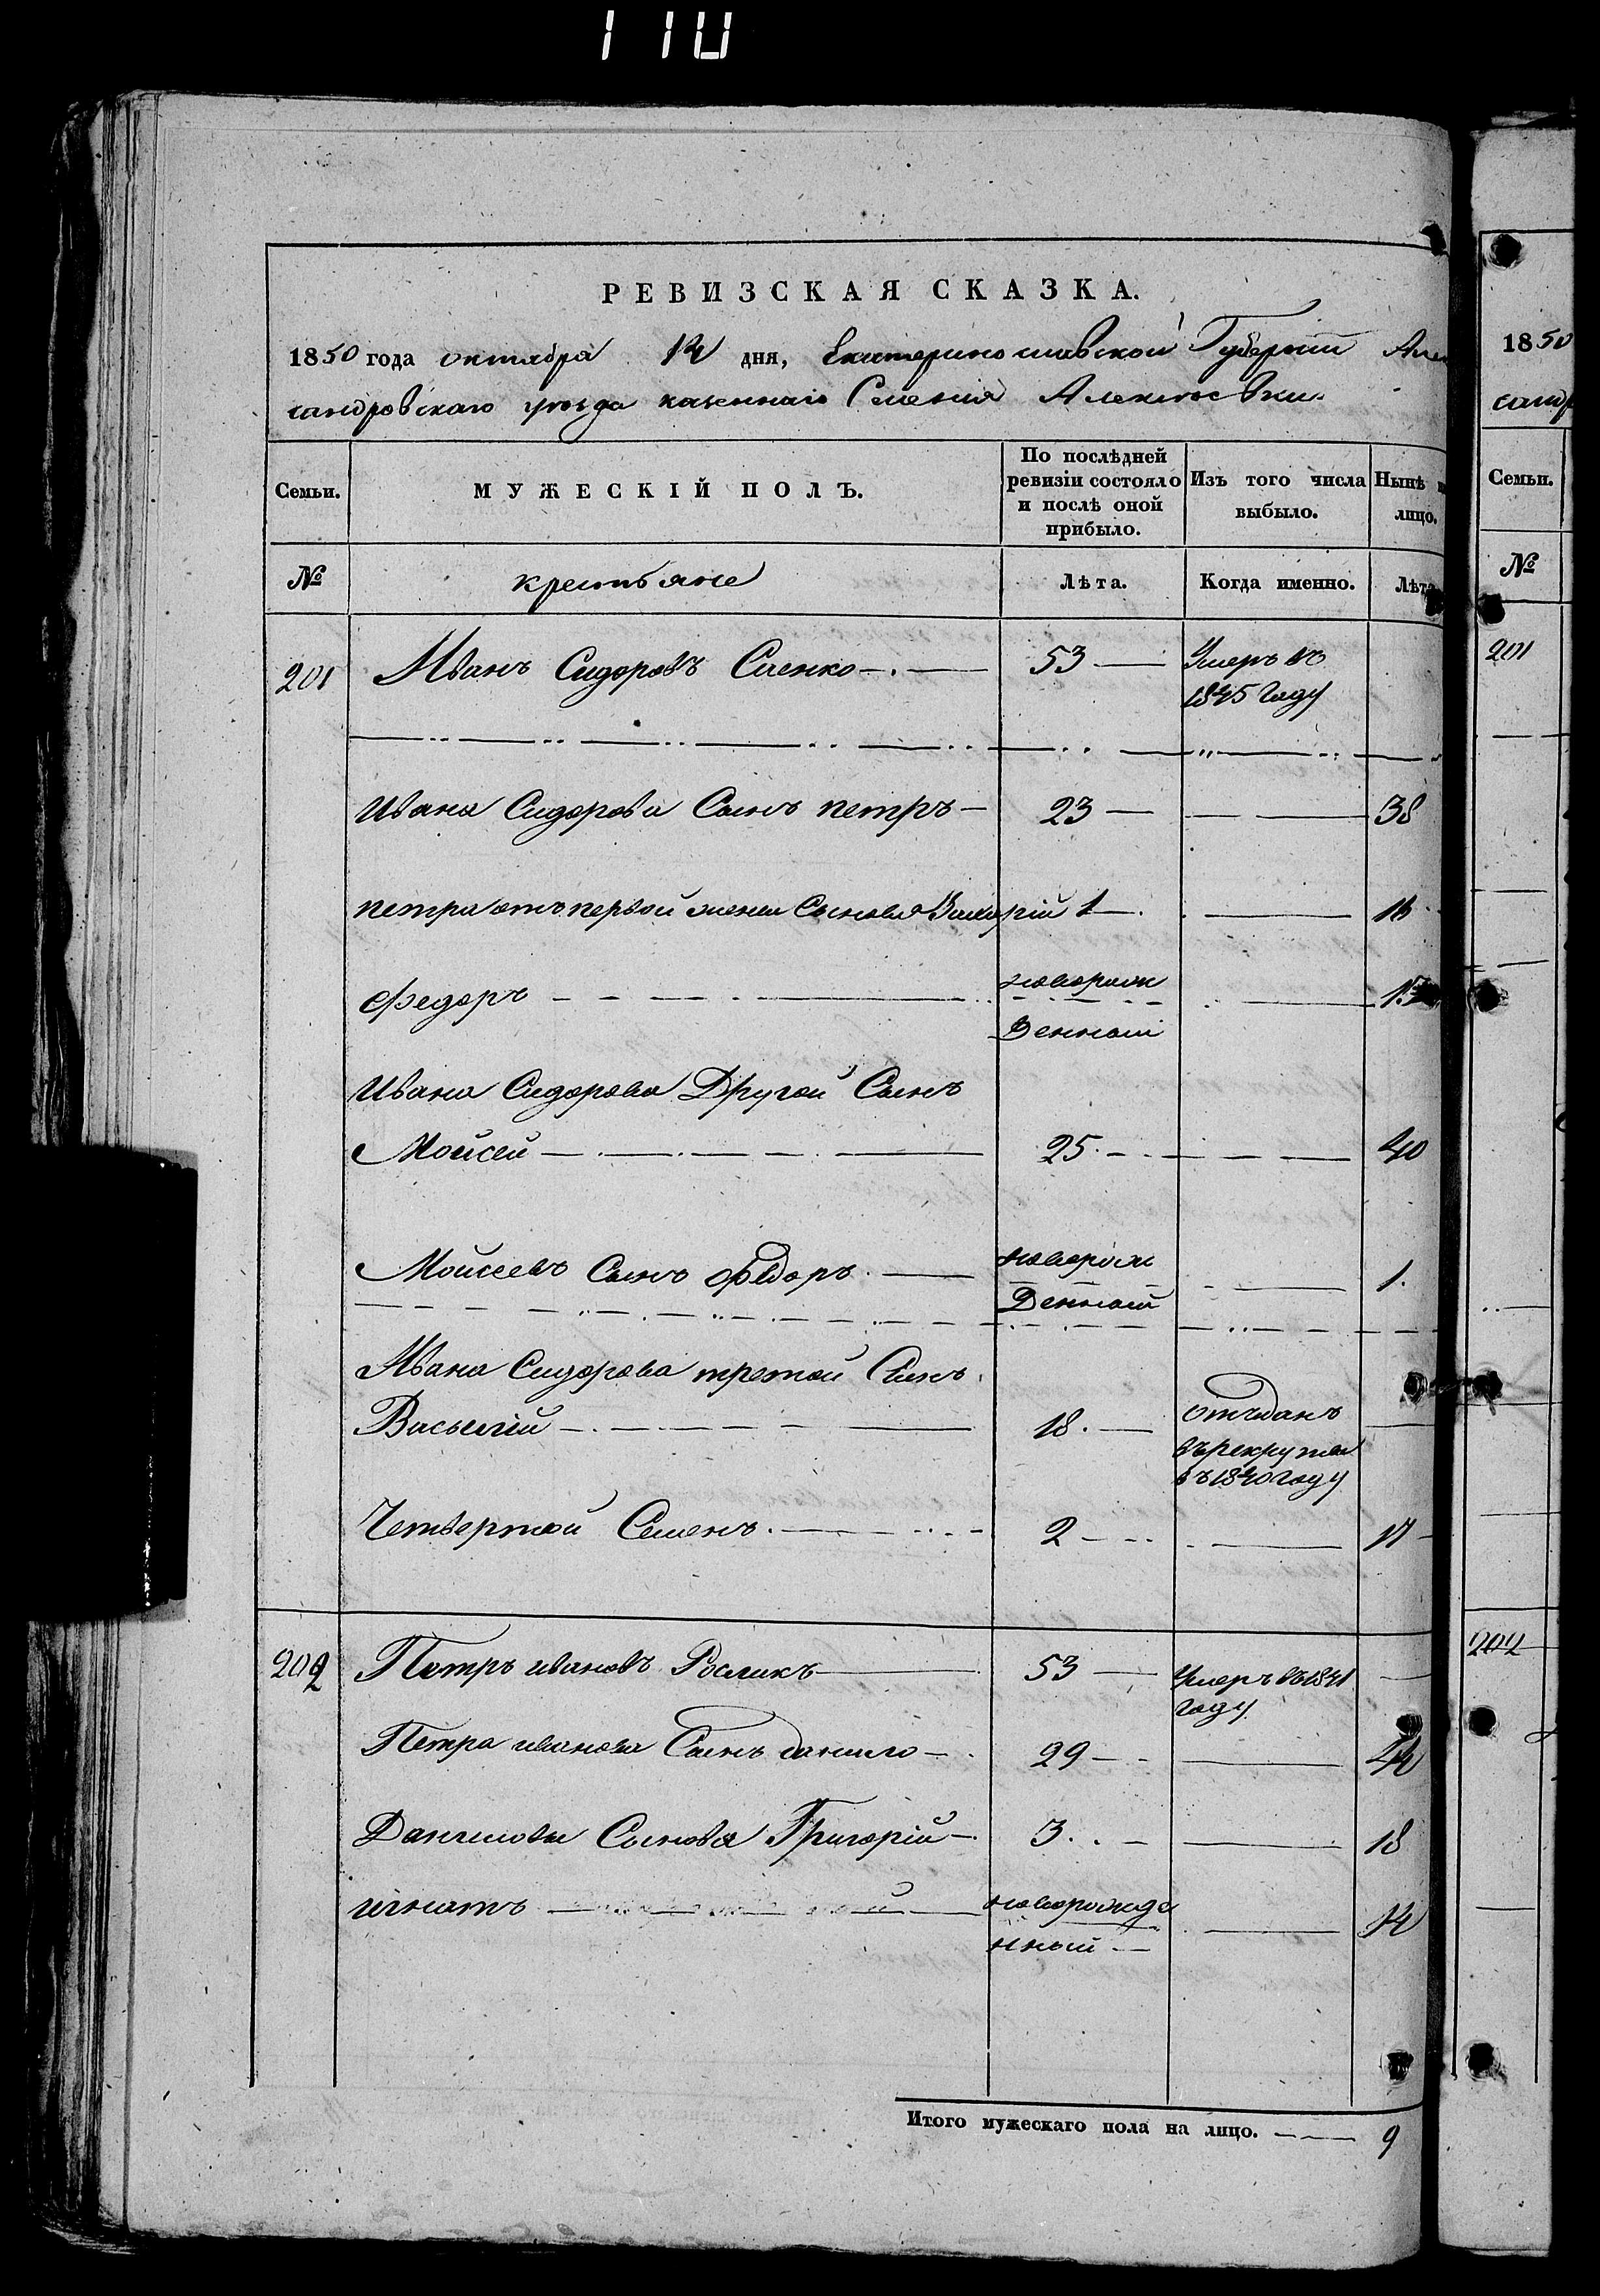 110
РЕВИЗСКАЯ СКАЗКА.
1850 года октября 14 дня, Екатеринославской Губернiи Алек
сандровскаго уѣзда казеннаго Селенiя Алексѣевки
Семьи.
МУЖЕСКIЙ ПОЛЪ.
По послѣдней
ревизiи состояло
и послѣ оной
прибыло.
Изъ того числа
выбыло.
Нынѣ
лицо.
№
крестьяне
Лѣта.
Когда именно.
Лѣта
201 Иванъ Сидоровъ 53 Умеръ въ
1845 Году
Ивана Сидорова Сынъ петръ 23 38
петра отъ первой жены Сыновья Захарiй 1 16
Федоръ новорож 15
денный
Ивана Сидорова Другой Сынъ
Мойсей 25 40
Мойсеевъ Сынъ Фёдоръ новорож 1.
Денный
Ивана Сидорова третой Сынъ
Васылiй 18 отъданъ
въ рекруты
въ 1840 году
Четвертой Семенъ 2 17
202 Петръ ивановъ Росликъ 53 Умеръ въ 1841
году
Петра иванова Сынъ данило 29 44
Даниловы Сыновья Григорiй 3 18
игнатъ новорожде 14
нный
Итого мужескаго пола на лицо. 9
1850
сандр
Семьи.
№
201
202